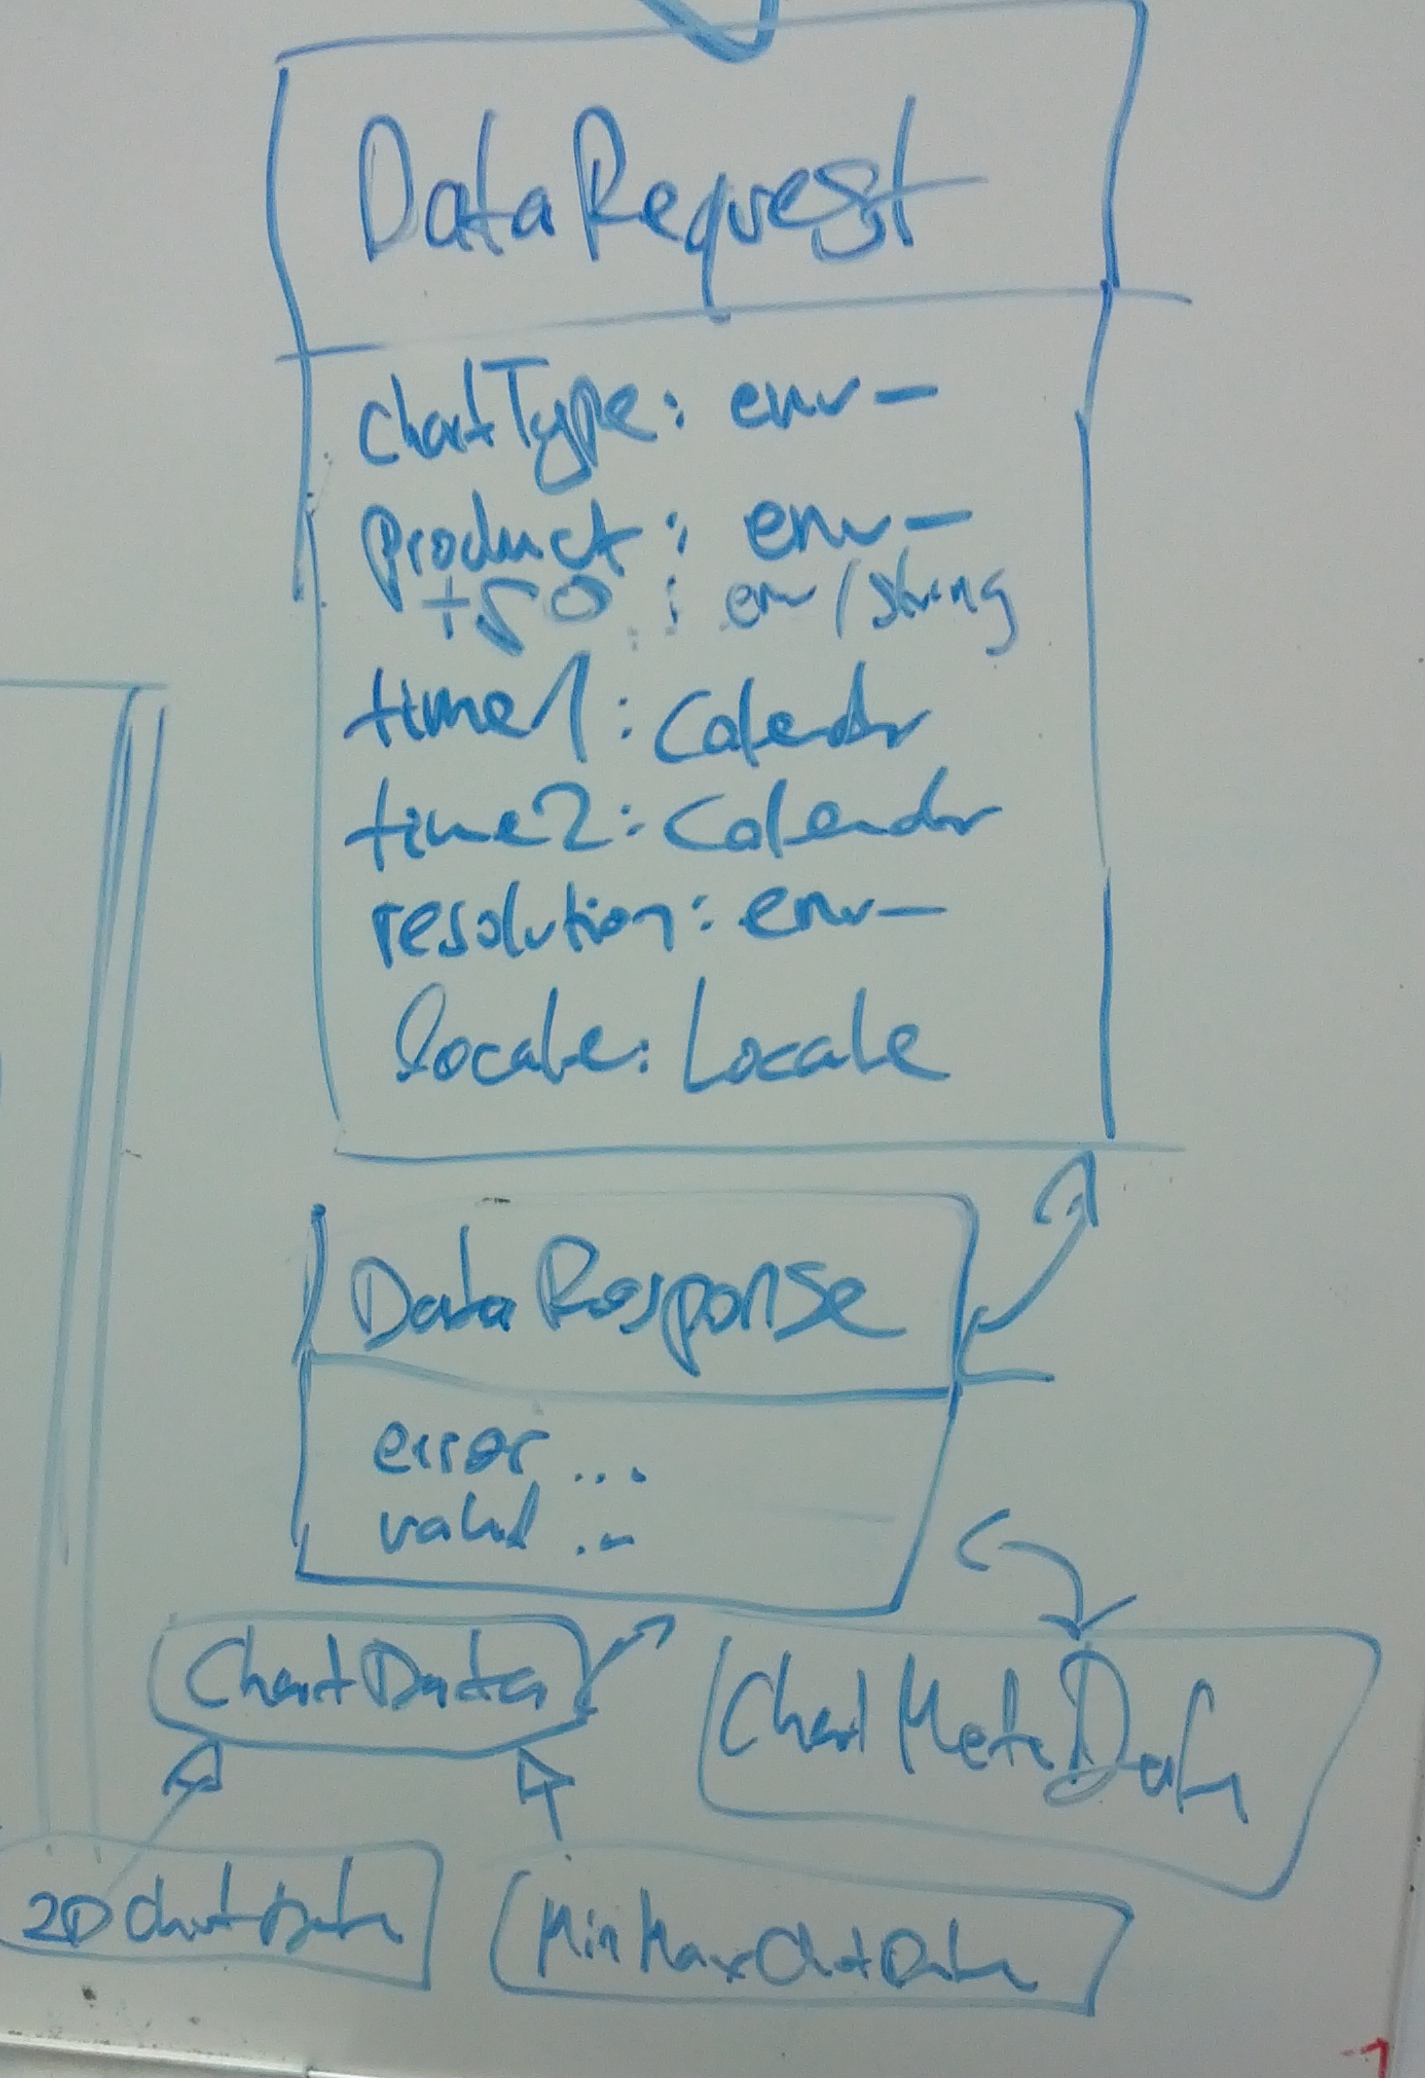 DataRequest
chartType: enum
product: enum
+SO : enum / string
time1: Calendar
time2: Calendar
resolution: enum
locale: Locale
DataResponse
error ...
valid ...
ChartData
ChartMetaData
2DChartData
MinMaxChartData
1